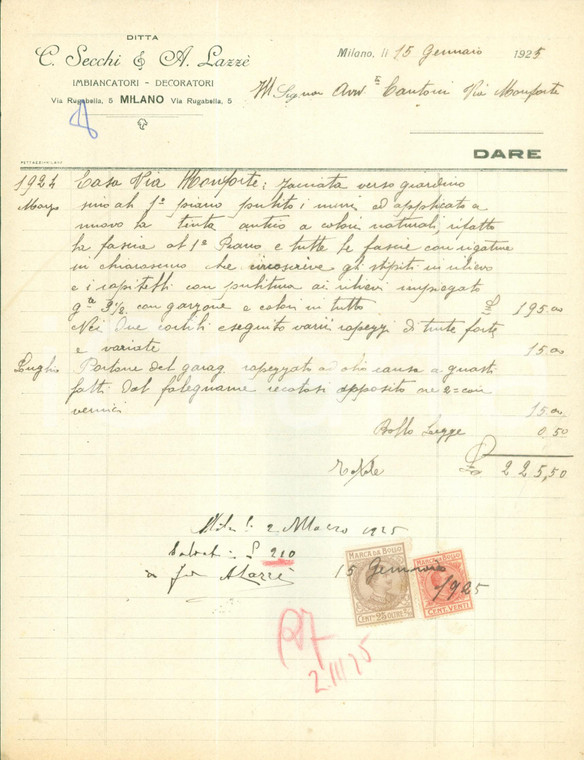 DITTA
C. Secchi & A. Lazzè
IMBIANCATORI - DECORATORI
Via Rugabella, 5 MILANO Via Rugabella, 5
Milano, li 15 Gennaio 1925
Ill Signor Avv Cantoni Via Monforte
DARE
1924 Casa Via Monforte: facciata verso giardino
Marzo sino al 1° piano pulito i muri ed applicato a
nuovo la tinta antico a colori naturali, rifatto
la fascia al 1° Piano e tutte le fascie con rigature
in chiaroscuro che incoscrive gli stipiti in rilievo
e i capitelli con pulitura ai rilievi impiegato
g.te 3½ con garzone e colori in tutto £ 195,00
Nei due cortili eseguito varii rapezzi di tinte forte
e variate 15.00
Luglio Portone del garag. rapezzato ad olio causa a guasti
fatti dal falegname recatosi apposito con
vernici 15.00
Bollo Legge 0,50
Totale 225,50
2 Marzo 1925
Saldato £ 210
A Lazzè
MARCA DA BOLLO
MARCA DA BOLLO
15 Gennaio 1925
CENT. VENTI
2.III 25